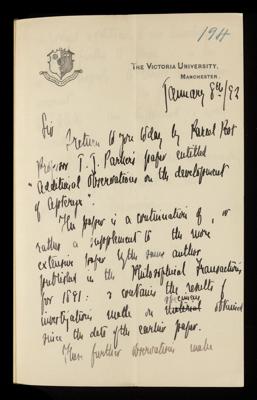 194
THE VICTORIA UNIVERSITY,
MANCHESTER.
January 8th/92
Sir
I return to you today by Parcel Post
Professor T. J. Parker's paper entitled
"Additional observations on the development
of Apteryx".
This paper is a continuation of, or
rather a supplement to the more
extensive paper by the same author
published in the Philosophical Transactions
for 1891: & contains the results of
specimens
investigations made on material obtained
since the date of the earlier paper.
These further observations make